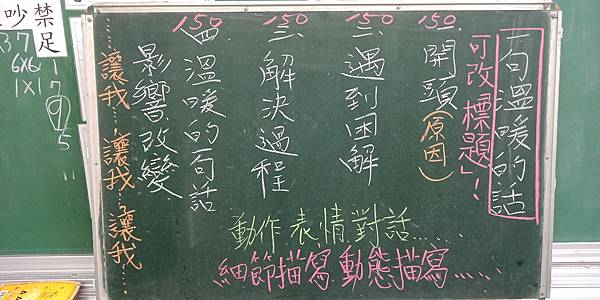 一句溫暖的話
可改「標題」!
150
一開頭(原因)
150
二遇到困解
150
三解決過程
150
四溫暖的一句話
影響改變
……讓我……讓我…讓我……
動作表情對話……
細節描寫動態描寫……
吵
禁
足
37
6x6
1x1
7
9
5